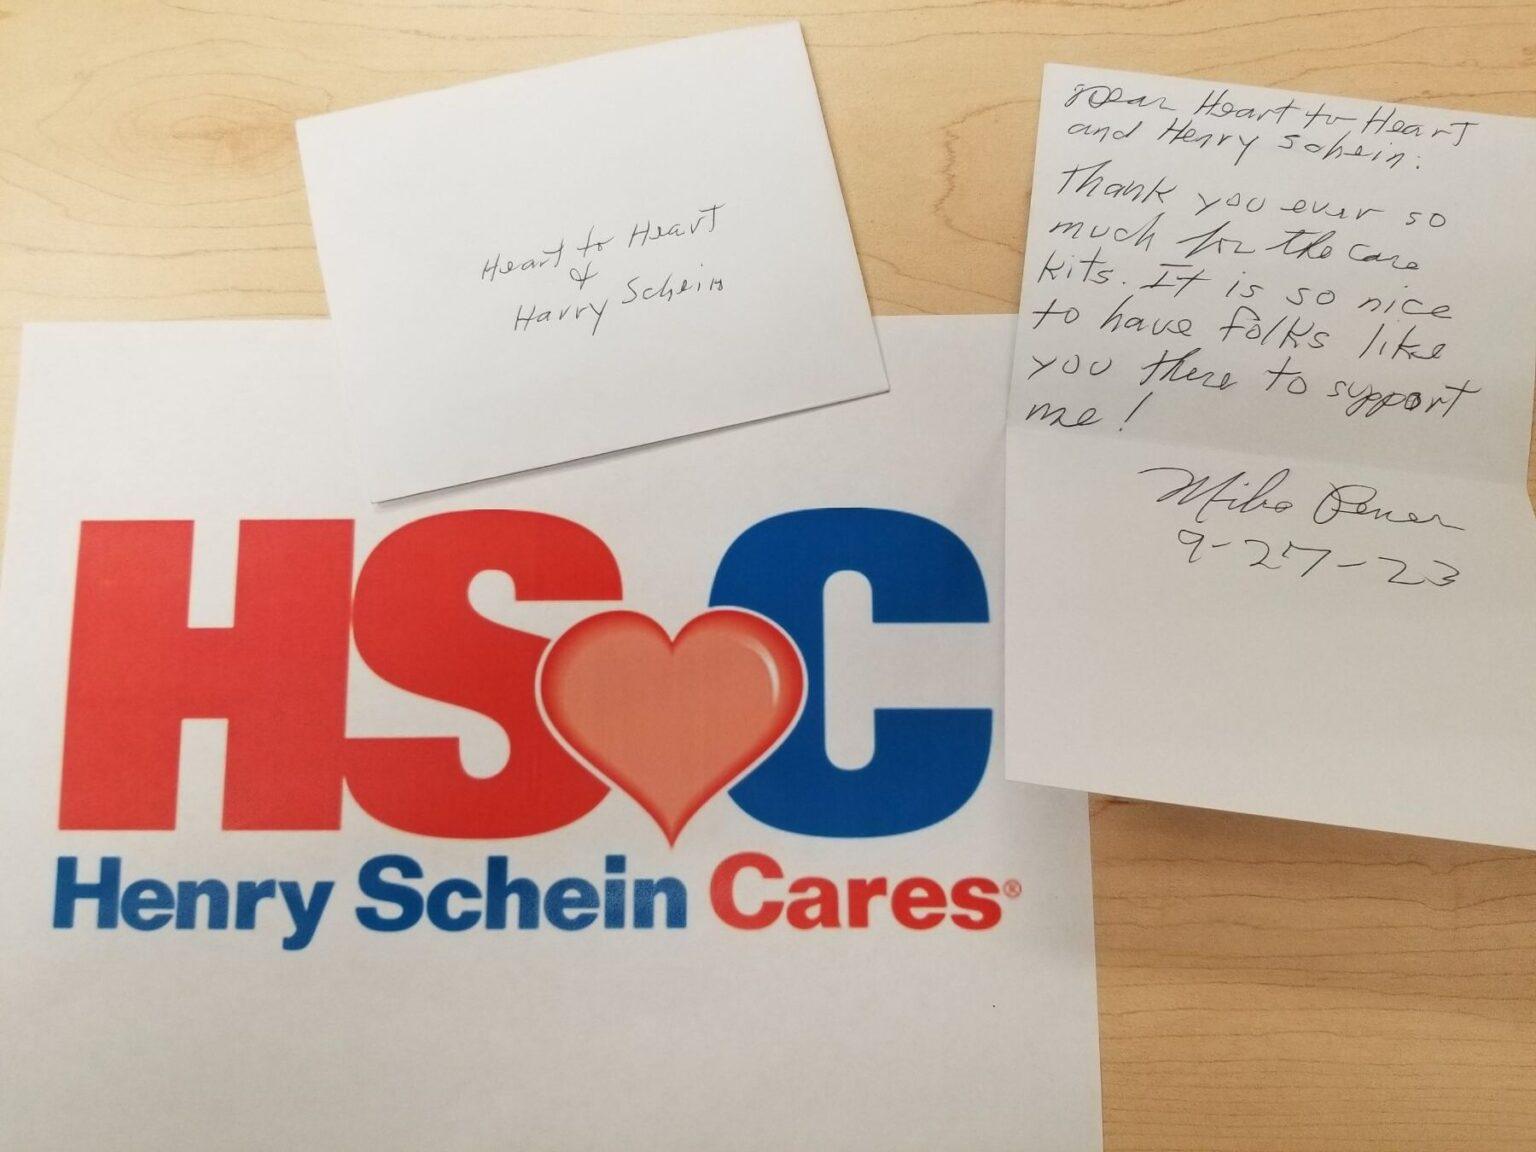 Heart to Heart
&
Harry Schein
Dear Heart to Heart
and Henry Schein:
Thank you ever so
much for the care
kits. It is so nice
to have folks like
you there to support
me!
Mike
9-27-23
HSC
Henry Schein Cares®